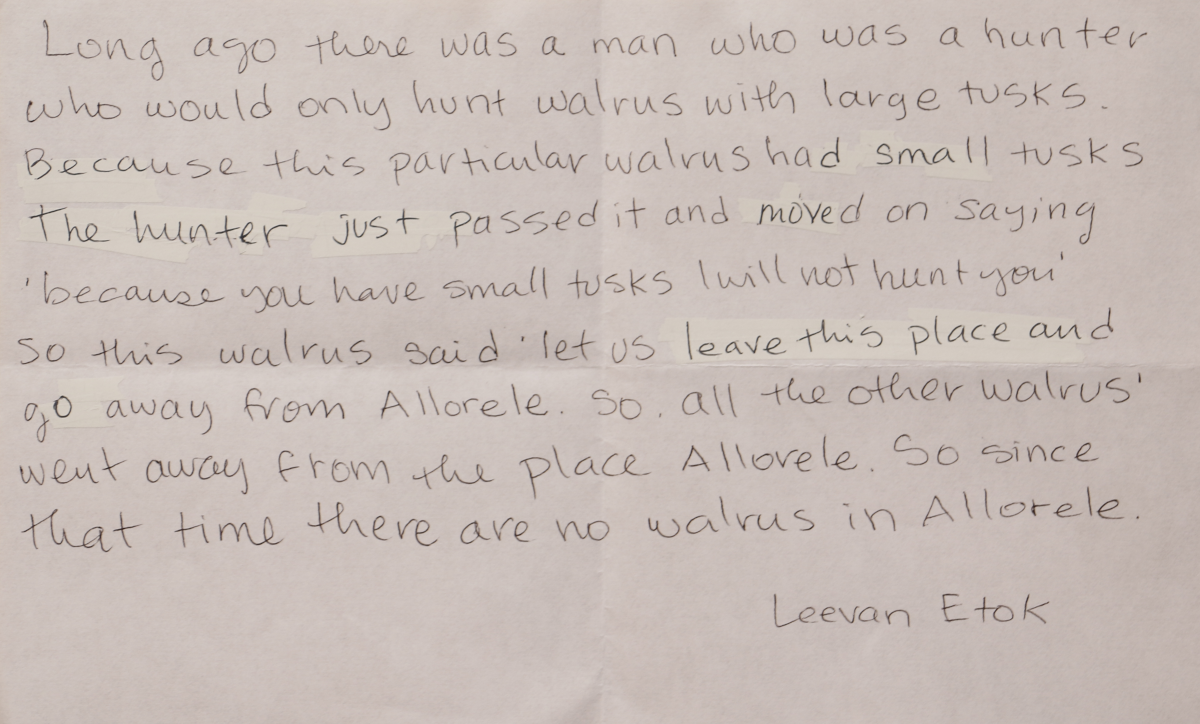 Long ago there was a man who was a hunter
who would only hunt walrus with large tusks.
Because this particular walrus had small tusks
The hunter just passed it and moved on saying
'because you have small tusks I will not hunt you'
so this walrus said 'let us leave this place and
go away from Allorele. So. all the other walrus'
went away from the place Allorele. So since
that time there are no walrus in Allorele.
Leevan Etok